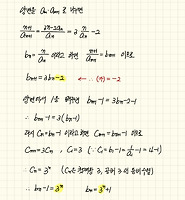 양변을 aₙ·aₙ₊₁ 로 나누면
(n+1)/aₙ₊₁ = (3n-2aₙ)/aₙ = 3·n/aₙ - 2
bₙ = n/aₙ 이라고 하면 (n+1)/aₙ₊₁ = bₙ₊₁ 이므로
bₙ₊₁ = 3bₙ-2 ← ∴ (가) = -2
양변에서 1을 빼주면 bₙ₊₁-1 = 3bₙ-2-1
∴ bₙ₊₁-1 = 3(bₙ-1)
다시 Cₙ = bₙ-1 이라고 하면 Cₙ₊₁ = bₙ₊₁-1 이므로
Cₙ₊₁ = 3Cₙ, C₁ = 3 (∵ C₁ = b₁-1 = 1/a₁ -1 = 4-1)
∴ Cₙ = 3ⁿ (Cₙ은 첫째항 3, 공비 3의 등비수열)
∴ bₙ-1 = 3ⁿ bₙ = 3ⁿ+1